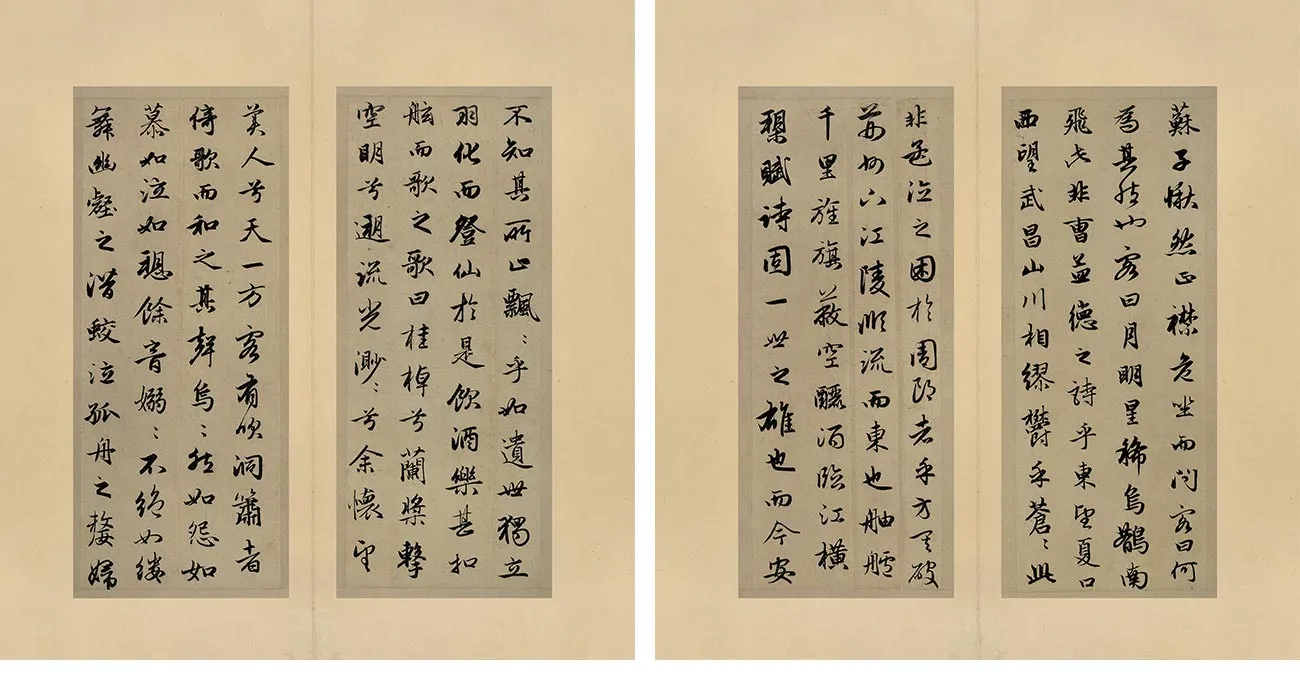 不知其所止飄〻乎如遺世獨立
羽化而登仙於是飲酒樂甚扣
舷而歌之歌曰桂棹兮蘭槳擊
空明兮遡流光渺〻兮余懷望
美人兮天一方客有吹洞簫者
倚歌而和之其聲烏〻然如怨如
慕如泣如愬餘音嫋〻不絕如縷
舞幽壑之潛蛟泣孤舟之嫠婦
蘇子愀然正襟危坐而問客曰何
為其然也客曰月明星稀烏鵲南
飛此非曹孟德之詩乎東望夏口
西望武昌山川相繆鬱乎蒼〻此
非孟德之困於周郎者乎方其破
荊州下江陵順流而東也舳艫
千里旌旗蔽空釃酒臨江橫
槊賦詩固一世之雄也而今安